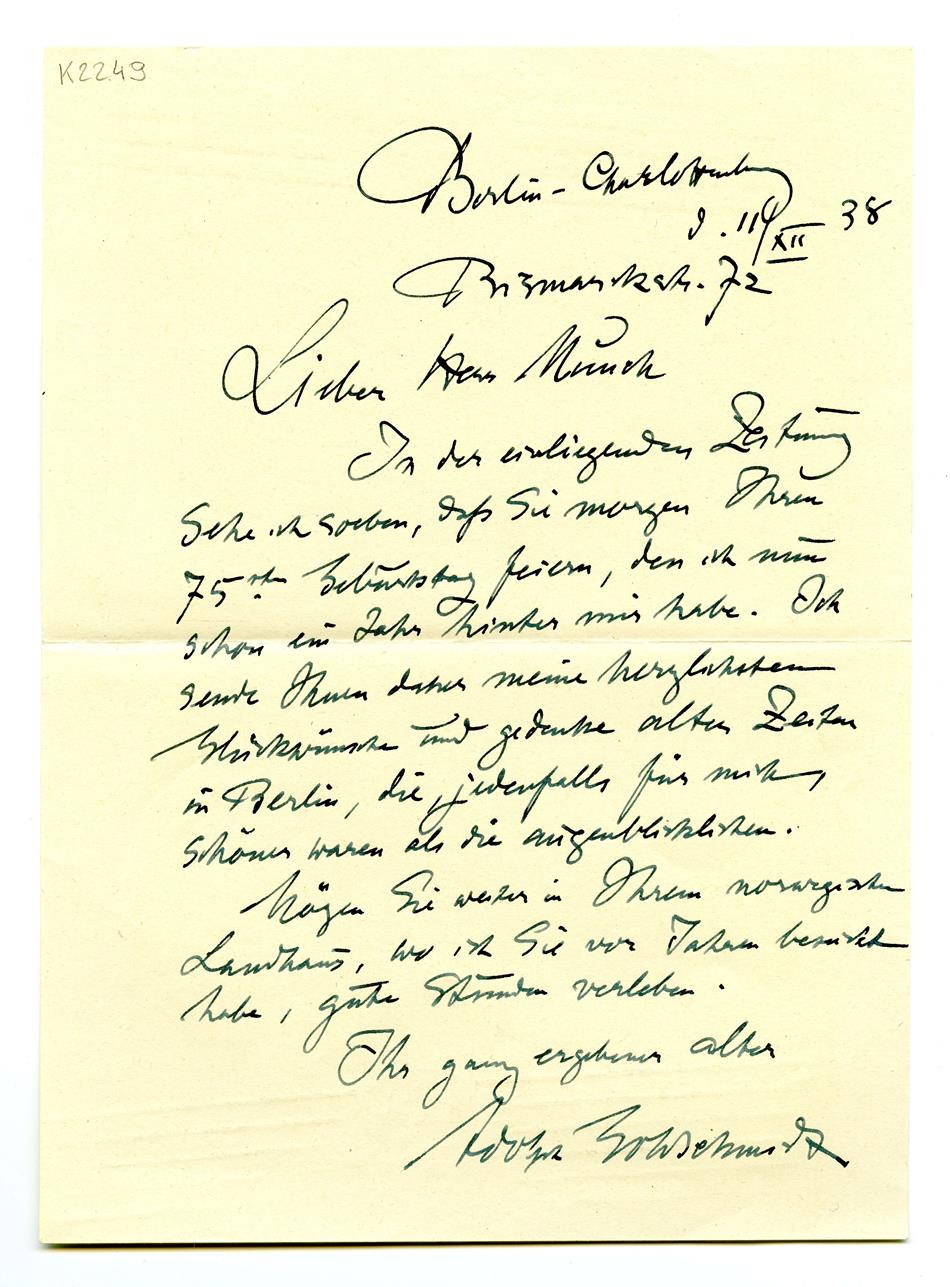 K2249
Berlin-Charlottenburg
d. 11/XII 38
Bismarckstr. 72
Lieber Herr Munch
In der einliegenden Zeitung
sehe ich soeben, daß Sie morgen Ihren
75sten Geburtstag feiern, den ich nun
schon ein Jahr hinter mir habe. Ich
sende Ihnen daher meine herzlichsten
Glückwünsche und gedenke alter Zeiten
in Berlin, die, jedenfalls für mich,
schöner waren als die augenblicklichen.
Mögen Sie weiter in Ihrem norwegischen
Landhaus, wo ich Sie vor Jahren besucht
habe, gute Stunden verleben.
Ihr ganz ergebener alter
Adolph Goldschmidt